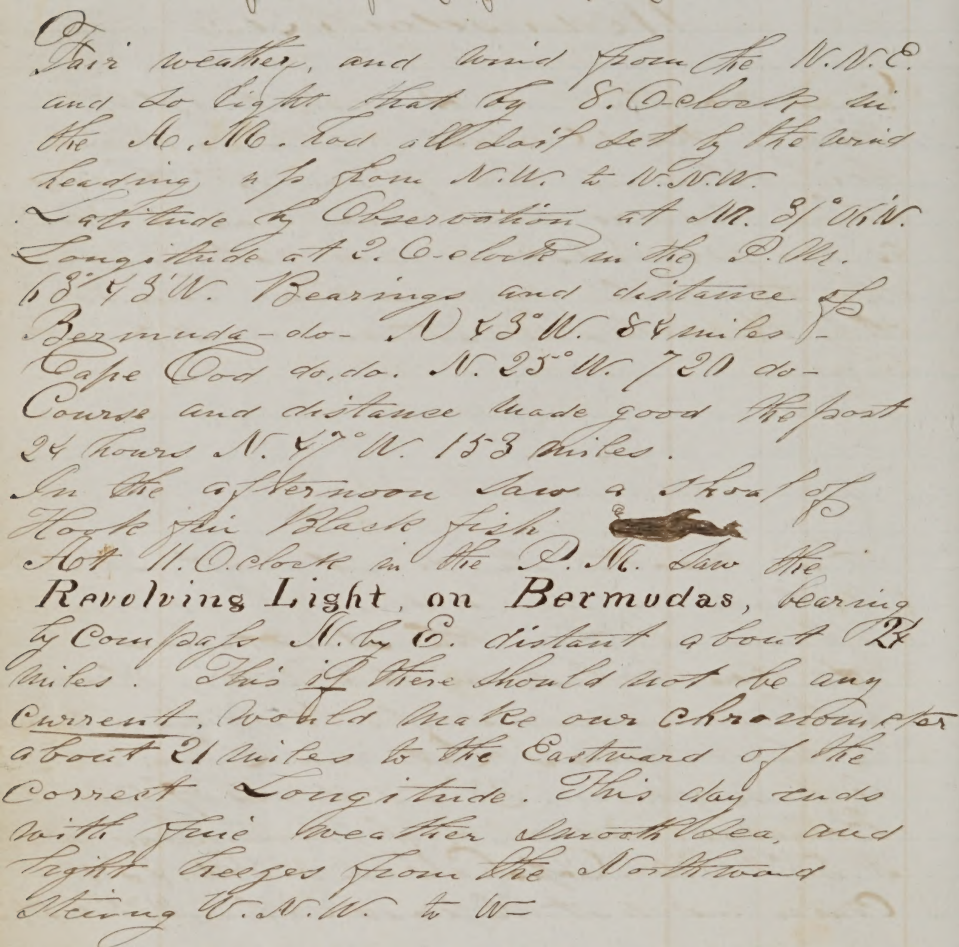 Fair weather, and wind from the N.N.E.
and so light that by 8. O-clock in
the A.M. had all sail set by the wind
heading up from N.W. to W.N.W.
Latitude by Observation at M. 31° 06' N.
Longitude at 2. O-clock in the P.M.
63° 43' W. Bearings and distance of
Bermuda -do- N 43° W. 84 miles -
Cape Cod do. do. N. 25° W. 720 do-
Course and distance made good the past
24 hours N. 47° W. 153 miles.
In the afternoon saw a shoal of
Hook fin Black fish
At 11. O.clock in the P.M. saw the
Revolving Light, on Bermudas, bearing
by Compass N. by E. distant about 24
miles. This if there should not be any
current, would make our chronometer
about 21 miles to the Eastward of the
Correct Longitude. This day ends
with fine weather smooth sea, and
light breezes from the Northward
Steering W.N.W. to W-